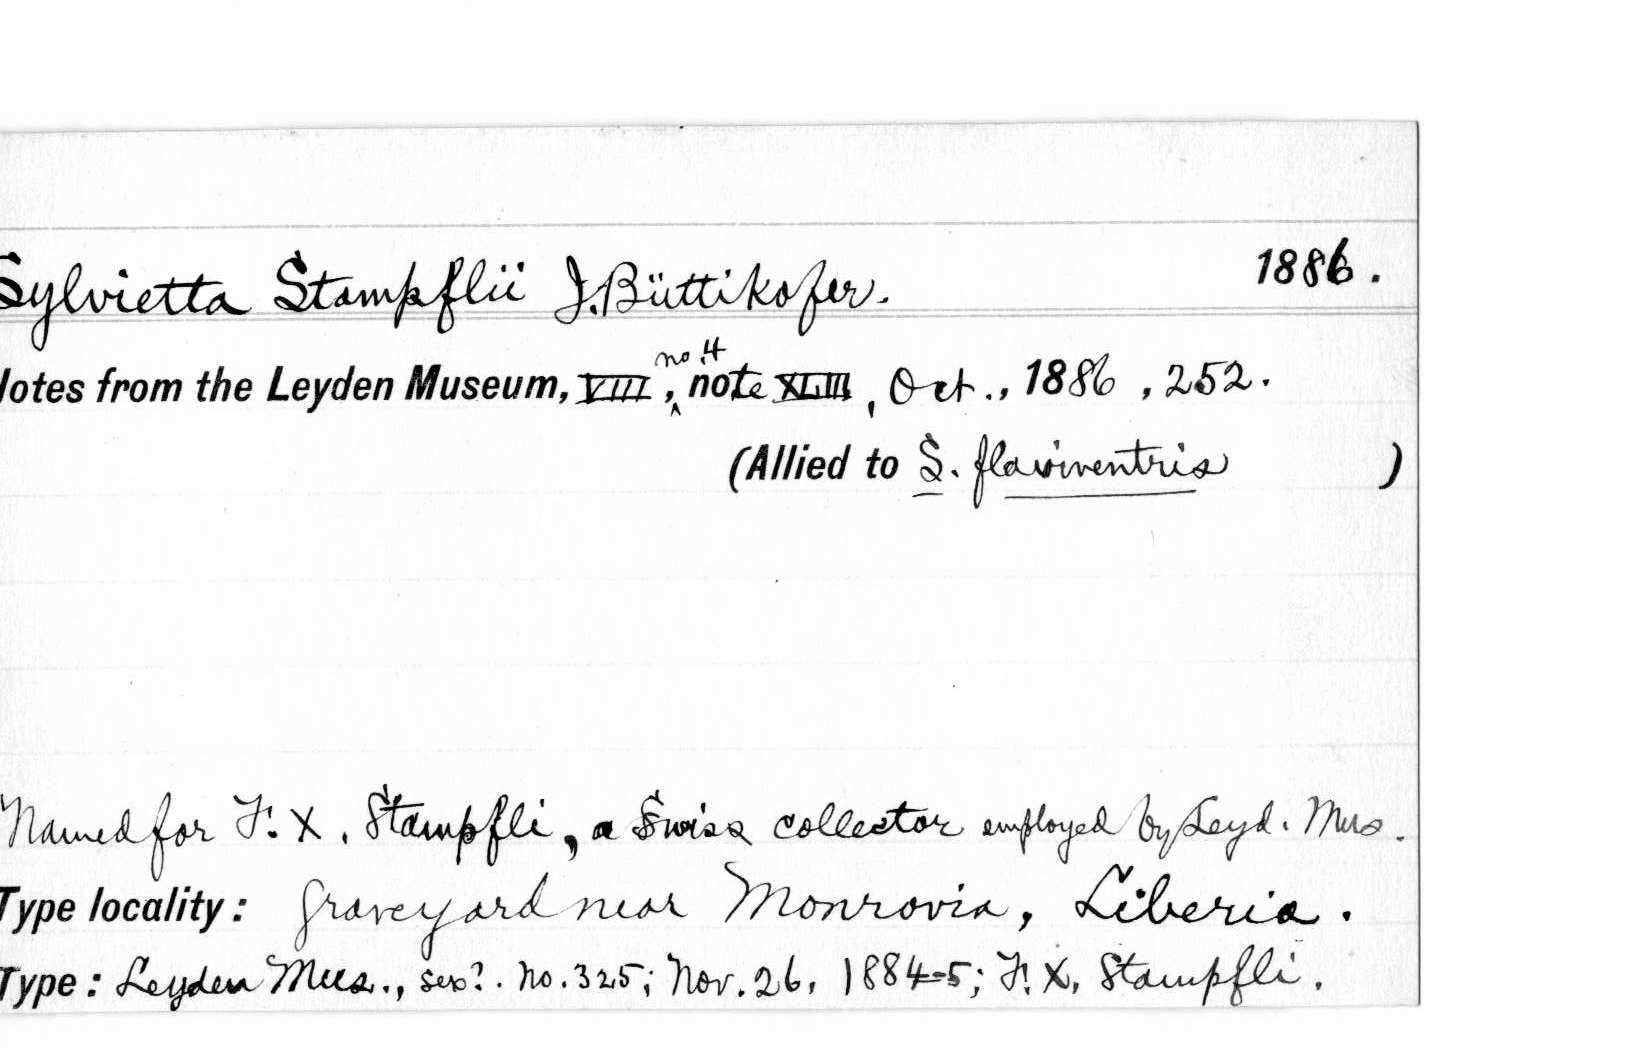 Sylvietta Stampflii J. Büttikofer. 1886.
Notes from the Leyden Museum, VIII, no. 4 note XLIII, Oct., 1886, 252.
(Allied to S. flaviventris )
Named for F. X. Stampfli, a Swiss collector employed by Leyd. Mus.
Type locality: graveyard near Monrovia, Liberia.
Type: Leyden Mus., sex?. No. 325; Nov. 26, 1884-5; F. X. Stampfli.